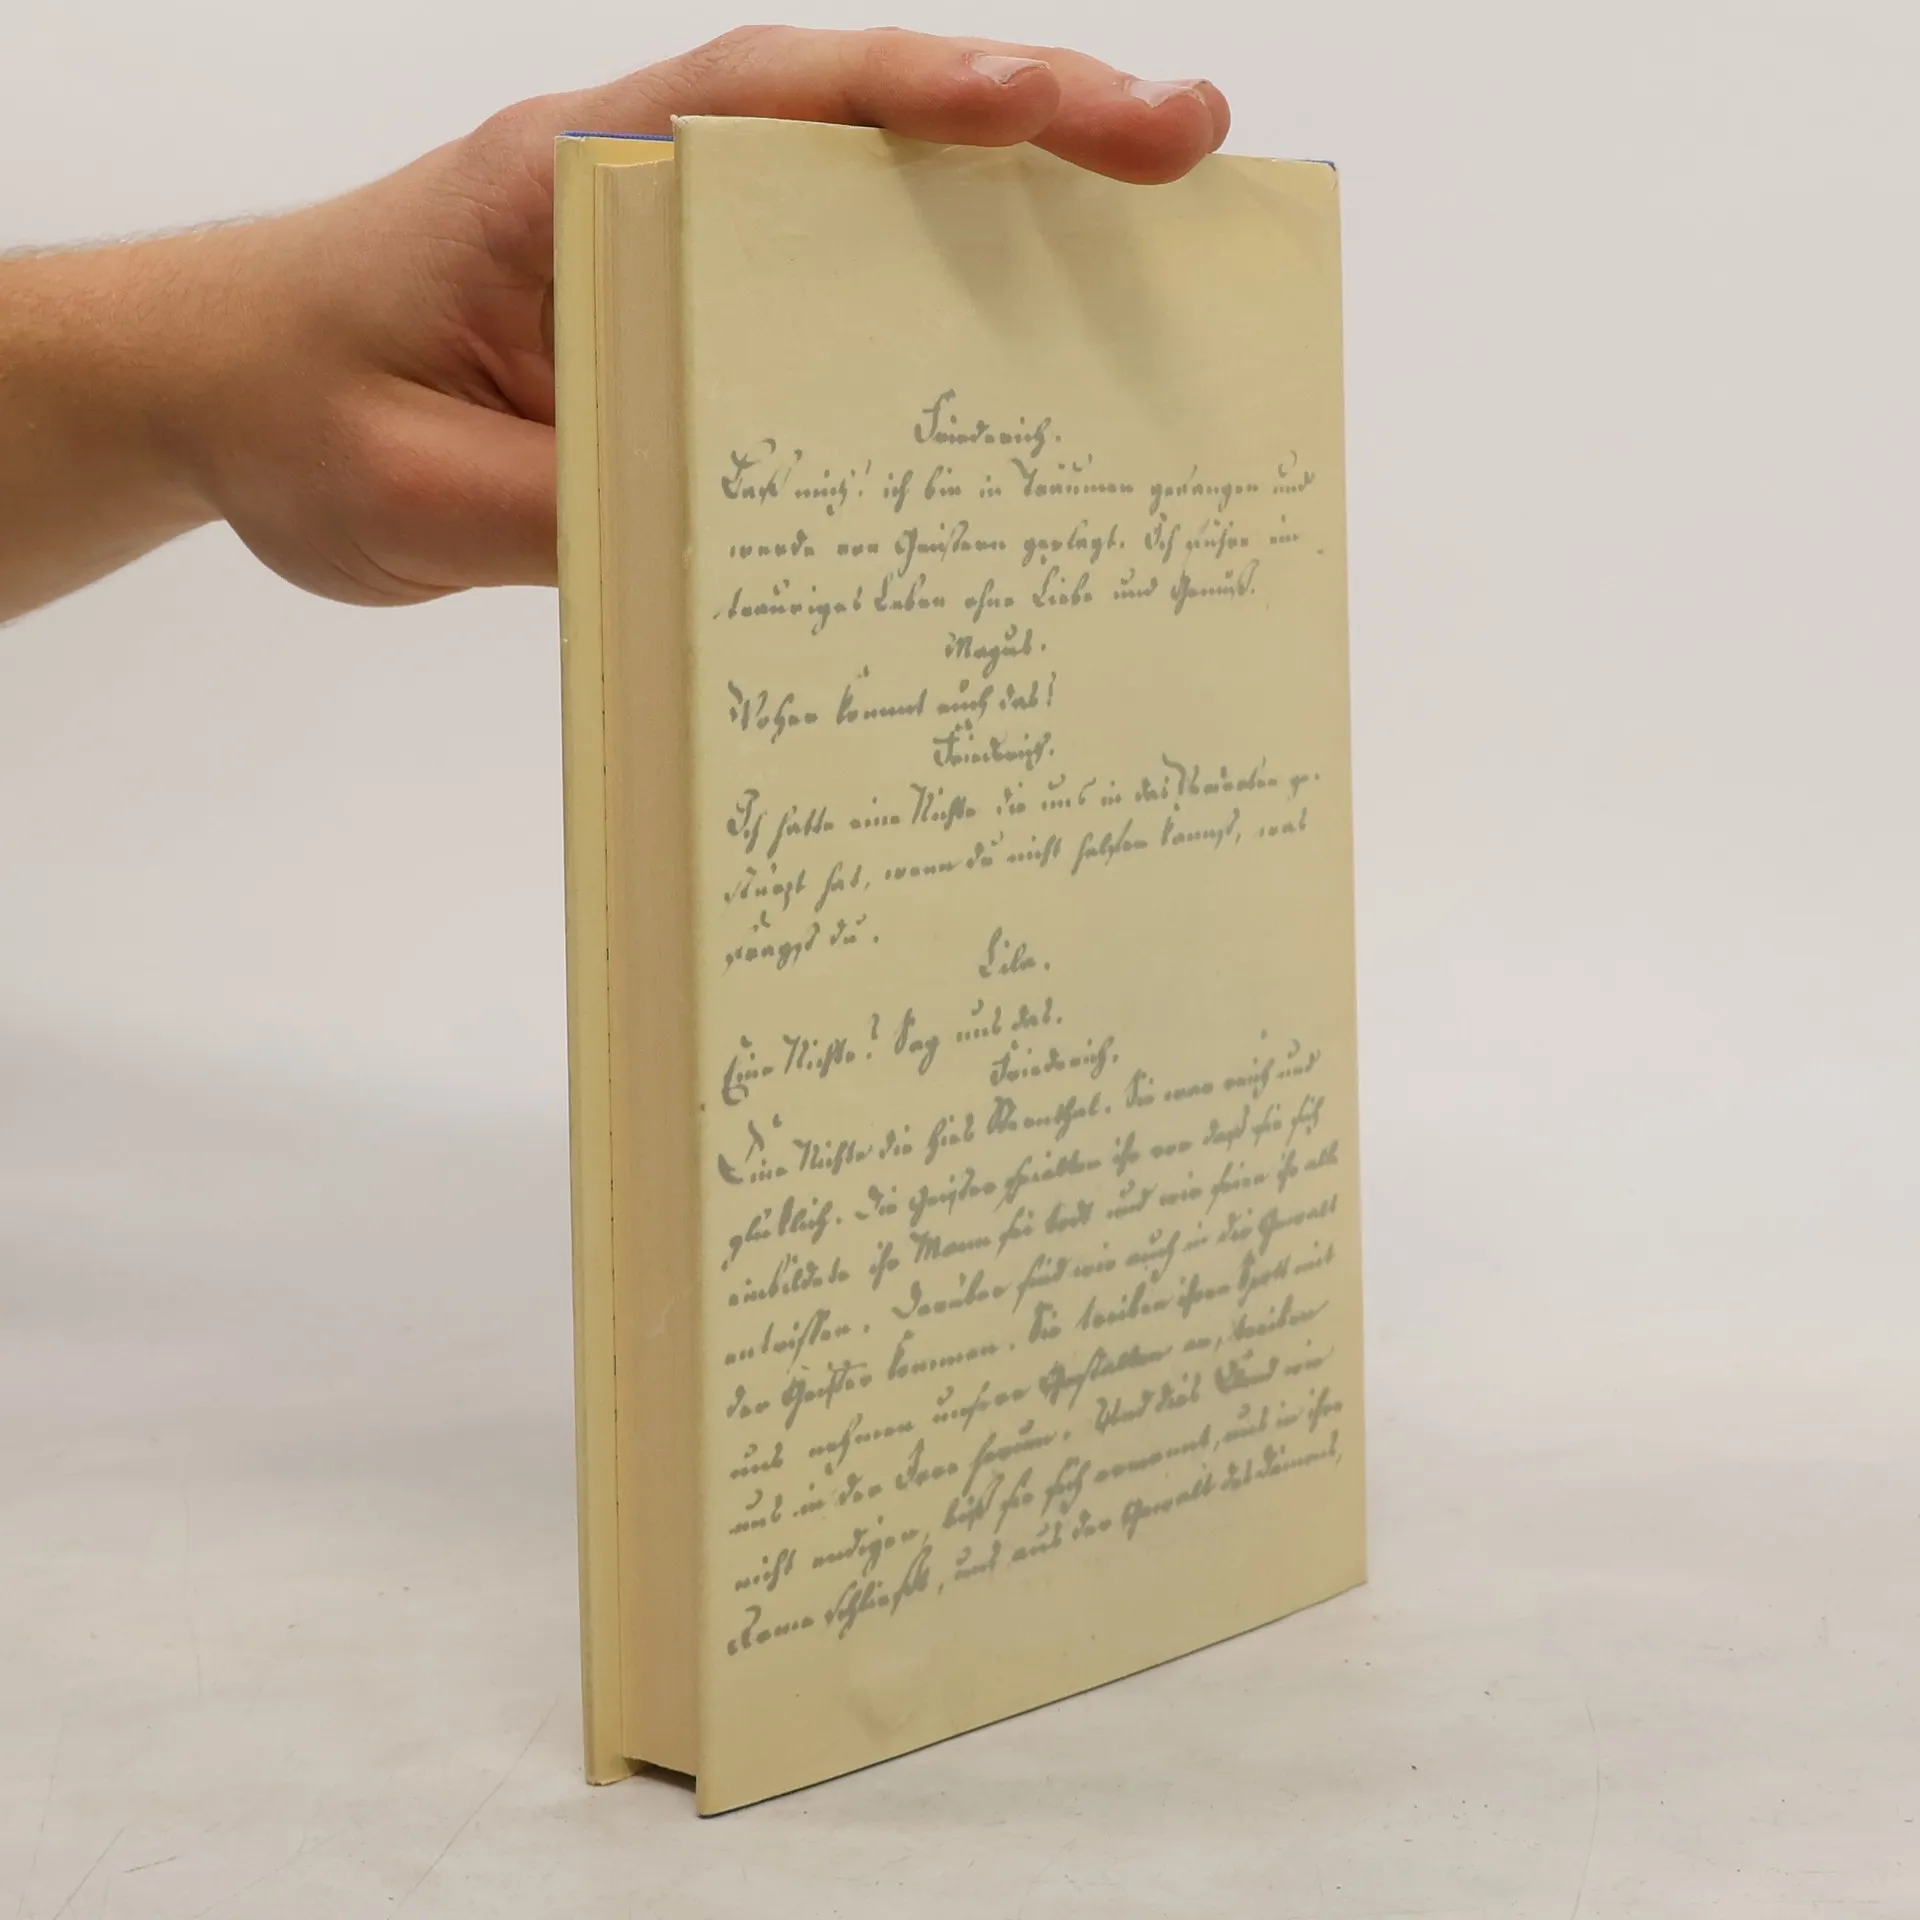 Friedrich.
Laß mich! ich bin in Träumen gefangen und
werde von Geistern geplagt. Ich führe ein
trauriges Leben ohne Liebe und Genuß.
Magus.
Woher kommt euch das?
Friedrich.
Ich hatte eine Nichte die uns in das Verderben ge-
stürzt hat, wenn du nicht helfen kannst, was
fragst du.
Lila.
Eine Nichte? Sag uns das.
Friedrich.
Eine Nichte die hies Sternthal. Sie war reich und
glücklich. Die Geister spielten ihr vor daß sie sich
einbildete ihr Mann sei todt und wir seien ihr all
entrissen. Darüber sind wir auch in die Gewalt
der Geister kommen. Sie treiben ihren Spott mit
uns nehmen unsere Gestalten an, treiben
uns in der Irre herum. Und dies Elend wir
nicht endigen, biß sie sich ermannt, uns in ihre
Arme schließt, und aus der Gewalt des Dämons,